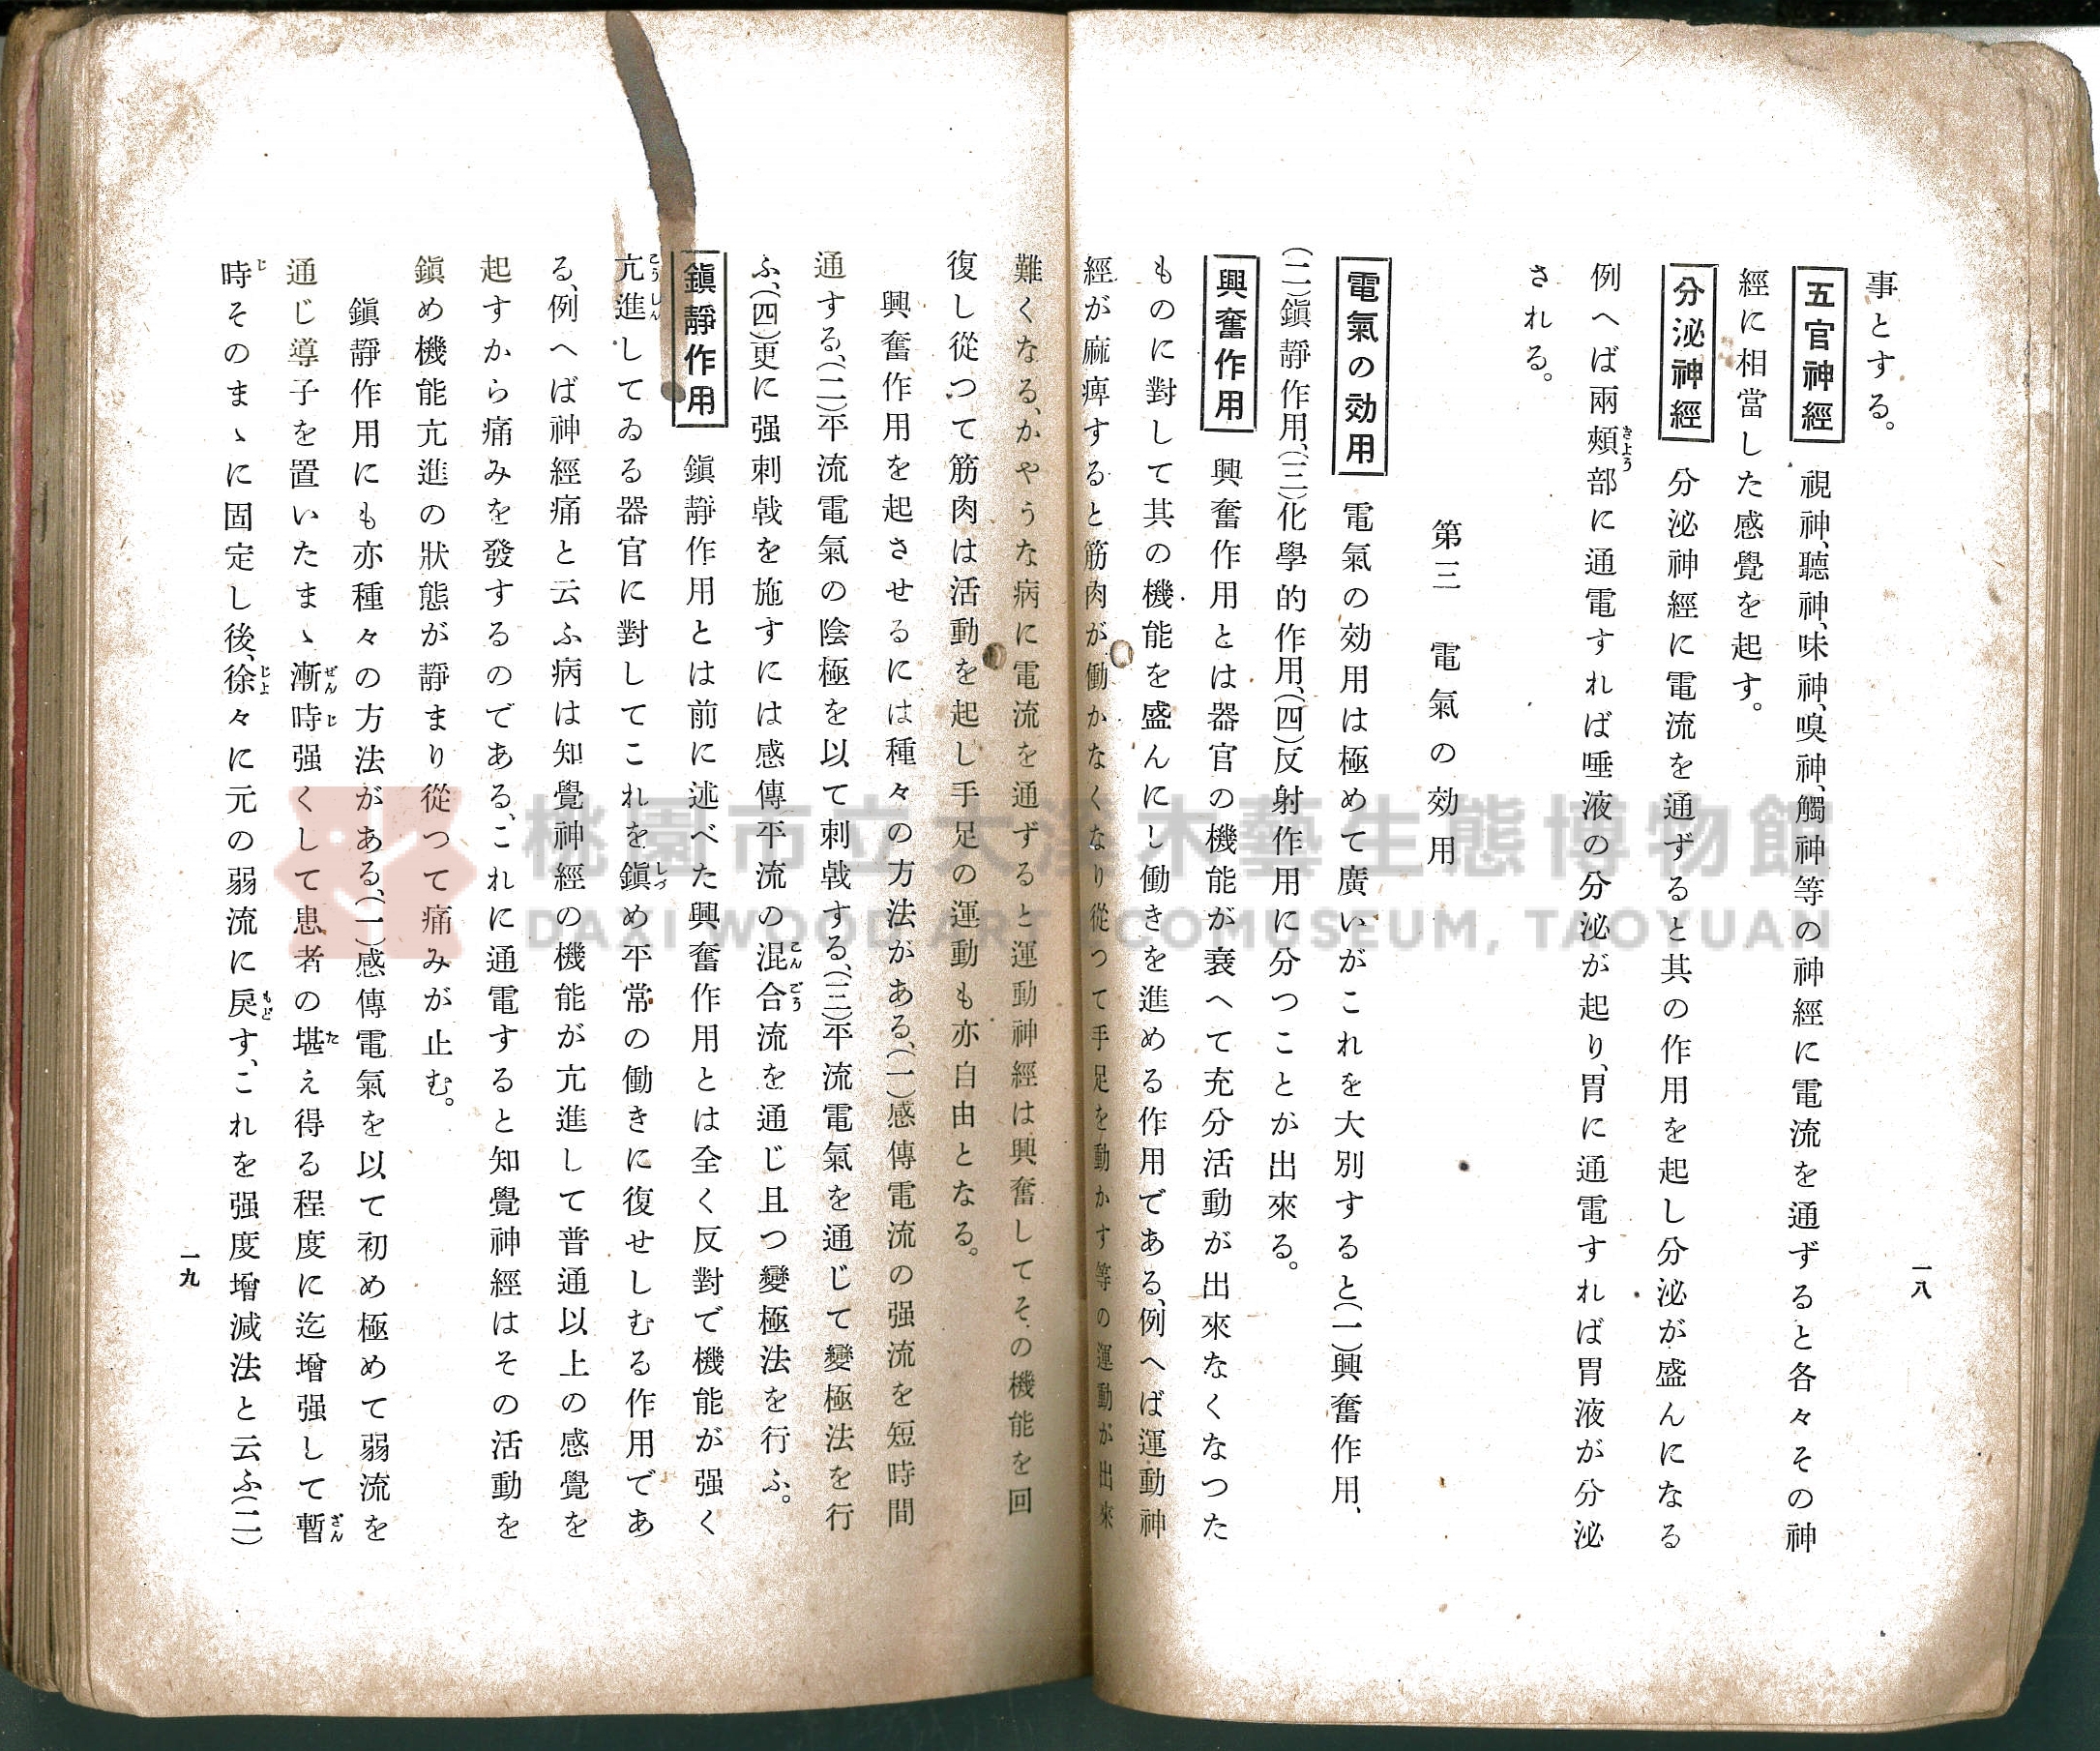 事とする。
五官神經 視神、聽神、味神、嗅神、觸神等の神經に電流を通ずると各々その神
經に相當した感覺を起す。
分泌神經 分泌神經に電流を通ずると其の作用を起し分泌が盛んになる
例へば兩頰部に通電すれば唾液の分泌が起り、胃に通電すれば胃液が分泌
きよう
される。
第三 電氣の効用
電氣の効用 電氣の効用は極めて廣いがこれを大別すると(一)興奮作用、
(二)鎭靜作用、(三)化學的作用、(四)反射作用に分つことが出來る。
興奮作用 興奮作用とは器官の機能が衰へて充分活動が出來なくなつた
ものに對して其の機能を盛んにし働きを進める作用である、例へば運動神
經が痲痺すると筋肉が働かなくなり從つて手足を動かす等の運動が出來
一八
難くなる、かやうな病に電流を通ずると運動神經は興奮してその機能を回
復し從つて筋肉は活動を起し手足の運動も亦自由となる。
興奮作用を起させるには種々の方法がある、(一)感傳電流の强流を短時間
通する、(二)平流電氣の陰極を以て刺戟する、(三)平流電氣を通じて變極法を行
ふ、(四)更に强刺戟を施すには感傳平流の混合流を通じ且つ變極法を行ふ。
こんごう
鎭靜作用 鎭靜作用とは前に述べた興奮作用とは全く反對で機能が强く
亢進してゐる器官に對してこれを鎭め平常の働きに復せしむる作用であ
こうしん しづ
る、例へば神經痛と云ふ病は知覺神經の機能が亢進して普通以上の感覺を
起すから痛みを發するのである、これに通電すると知覺神經はその活動を
鎭め機能亢進の狀態が靜まり從つて痛みが止む。
鎭靜作用にも亦種々の方法がある、(一)感傳電氣を以て初め極めて弱流を
通じ導子を置いたまゝ漸時强くして患者の堪え得る程度に迄增强して暫
ぜんじ た ざん
時そのまゝに固定し後、徐々に元の弱流に戾す、これを强度增減法と云ふ(二)
じ じよ もど
一九
桃園市立大溪木藝生態博物館
DAXI WOOD ART ECOMUSEUM, TAOYUAN